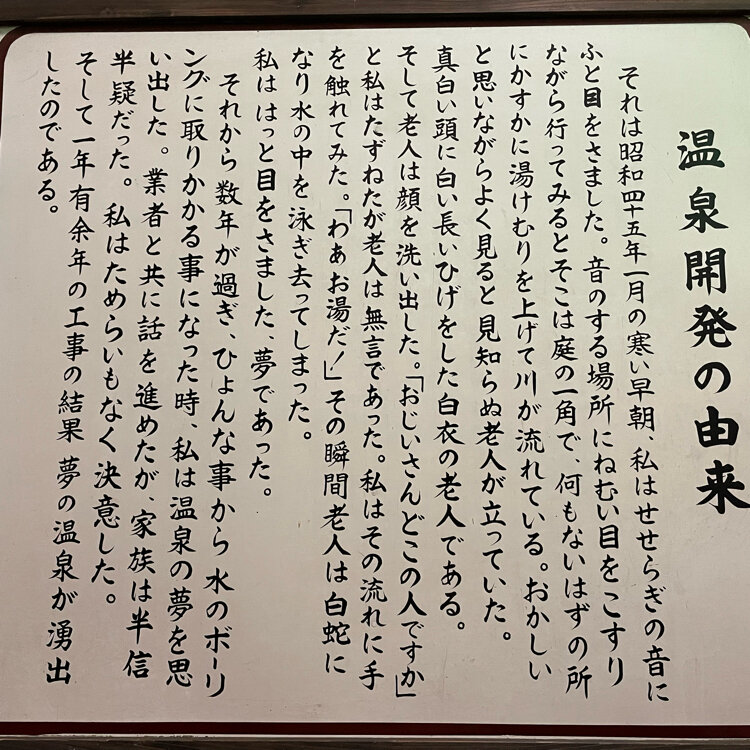 温泉開発の由来
それは昭和四十五年一月の寒い早朝、私はせせらぎの音に
ふと目をさました。音のする場所にねむい目をこすり
ながら行ってみるとそこは庭の一角で、何もないはずの所
にかすかに湯けむりを上げて川が流れている。おかしい
と思いながらよく見ると見知らぬ老人が立っていた。
真白い頭に白い長いひげをした白衣の老人である。
そして老人は顔を洗い出した。「おじいさんどこの人ですか」
と私はたずねたが老人は無言であった。私はその流れに手
を触れてみた。「わぁお湯だ！」その瞬間老人は白蛇に
なり水の中を泳ぎ去ってしまった。
私は はっと目をさました、夢であった。
それから数年が過ぎ、ひょんな事から 水のボーリ
ングに取りかかる事になった時、私は温泉の夢を思
い出した。業者と共に話を進めたが、家族は半信
半疑だった。私はためらいもなく決意した。
そして一年有余年の工事の結果 夢の温泉が湧出
したのである。